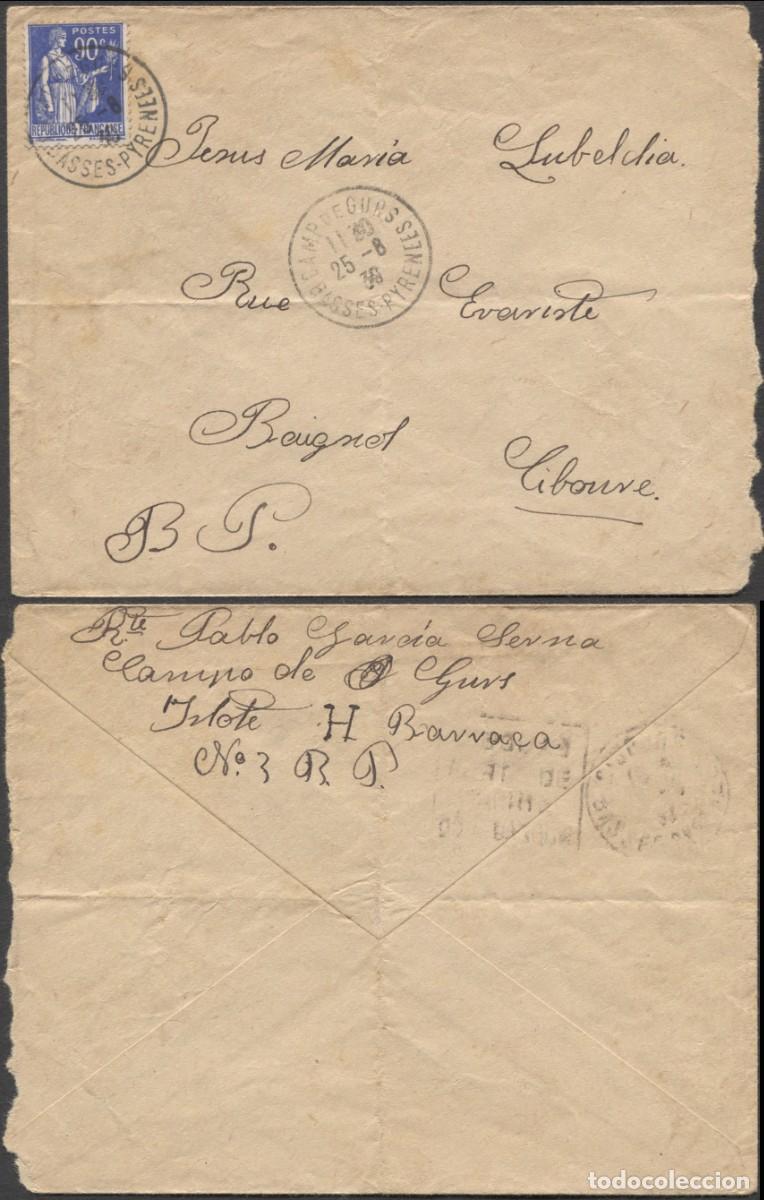 POSTES
90c
REPUBLIQUE FRANÇAISE
BASSES-PYRENEES
Jesus Maria Lubeldia.
CAMP DE GURS
11 30
25 -8
39
BASSES-PYRENEES
Rue Evariste
Baignol Ciboure.
B P.
Rte Pablo García Serna
Campo de Gurs
Islote H Barraca
No. 3 B. P.
todocoleccion